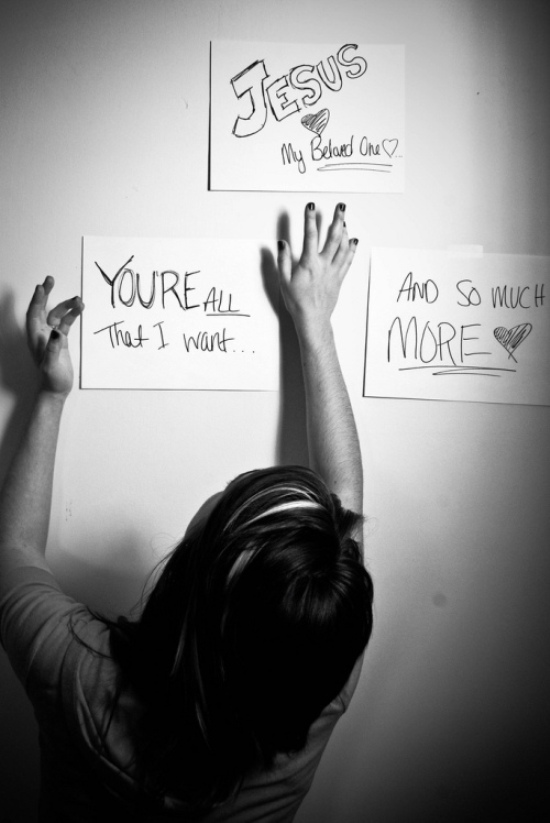 JESUS
My Beloved One
YOU'RE ALL
That I want...
AND SO MUCH
MORE